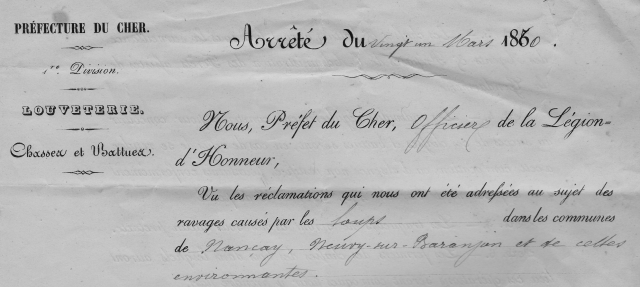 PRÉFECTURE DU CHER.
1re Division.
LOUVETERIE.
Chasses et Battues.
Arrêté du vingt un Mars 1860.
Nous, Préfet du Cher, Officier de la Légion-
d'Honneur,
Vu les réclamations qui nous ont été adressées au sujet des
ravages causés par les loups dans les communes
de Nançay, Neuvy-sur-Baranjon et de celles
environnantes.